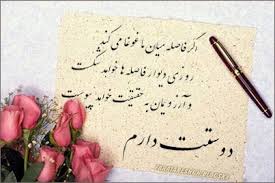 اگر فاصله میان ما غوغا می کند
روزی دیوار فاصله ها خواهد شکست
و آرزویمان به حقیقت خواهد پیوست
دوستت دارم